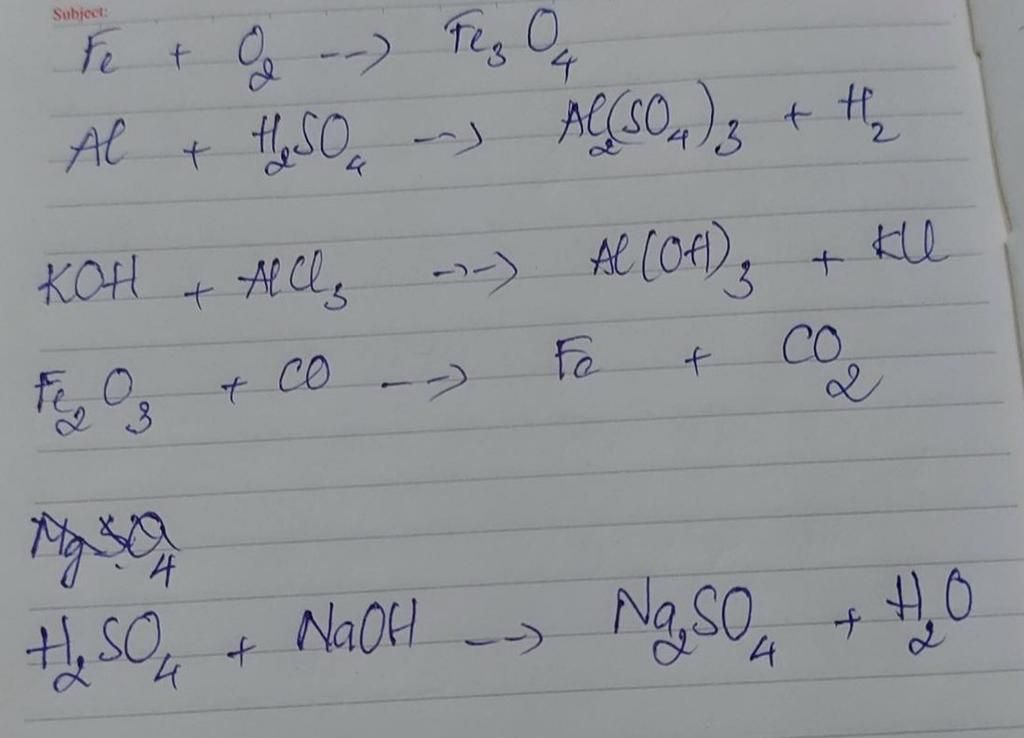 Subject:
Fe + O₂ --> Fe₃O₄
Al + H₂SO₄ --> Al₂(SO₄)₃ + H₂
KOH + AlCl₃ --> Al(OH)₃ + KCl
Fe₂O₃ + CO --> Fe + CO₂
MgSO₄
H₂SO₄ + NaOH --> Na₂SO₄ + H₂O